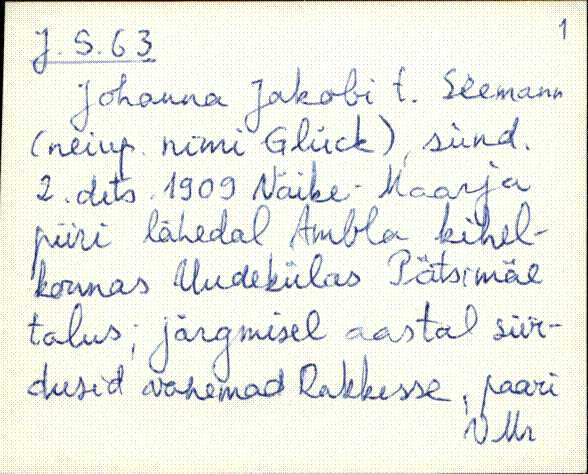 1
J. S. 63
Johanna Jakobi t. Seemann
(neiup. nimi Glück), sünd.
2. dets. 1909 Väike-Maarja
piiri lähedal Ambla kihel-
konnas Uudekülas Pätsimäe
talus; järgmisel aastal siir-
dusid vanemad Rakkesse, paari